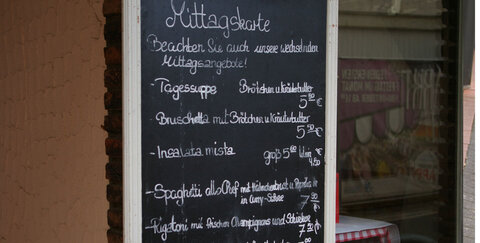 Mittagskarte
Beachten Sie auch unsere wechselnden
Mittagsangebote!
- Tagessuppe Brötchen u Kräuterbutter
5.90 €
- Bruschetta mit Brötchen u Kräuterbutter
5.50 €
- Insalata mista groß 5.60 klein
4.50
- Spaghetti allo Chef mit Hähnchenbrust u Paprika
in Curry-Sahne
7.50 €
- Rigatoni mit frischen Champignons und Schinken
7.50